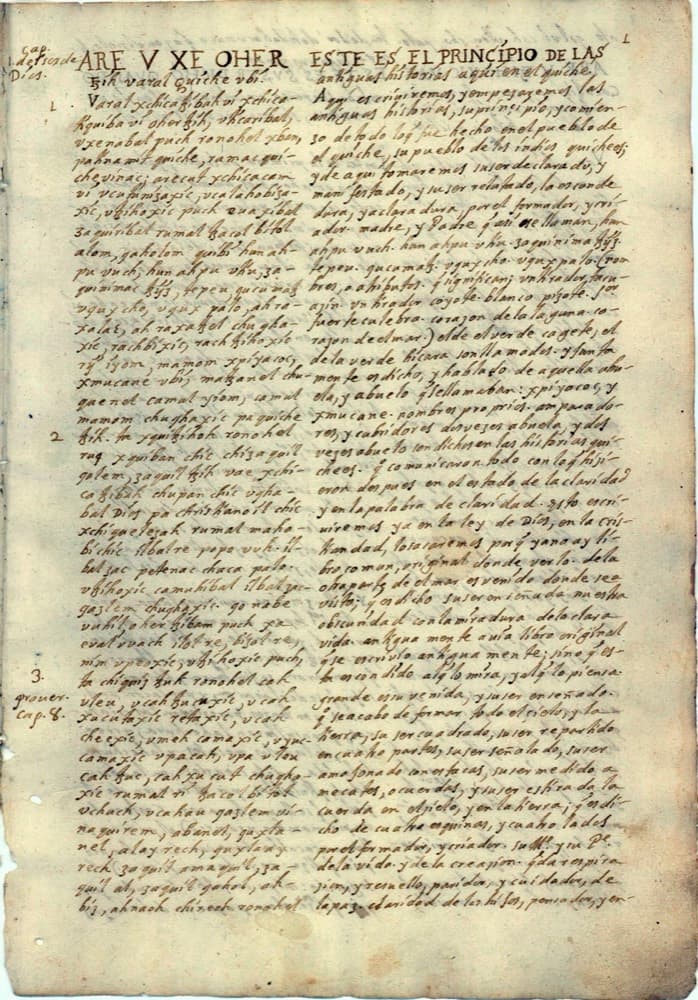 1
Cap.
1. del ser de
Dios.
1
2
3.
prouer.
cap. 8.
ARE V XE OHER
tzih varal Quiche vbi.
Varal xchicatzibah vi xchica-
tiquiba vi oher tzih, vticaribal,
vxenabal puch ronohel xban,
pa tinamit quiche, ramac qui-
che vinac; arecut xchicacam
vi vcutunizaxic, vcalahobiza-
xic, vtzihoxic puch euaxibal
zaquiribal rumal tzacol bitol
alom, qaholom quibi hun ah-
pu vuch, hun ahpu vtiu, za-
quinimac tzyz, tepeu qucumatz
vqux cho, vqux palo, ah ra-
xalac, ah raxatzel chugha-
xic, rachbixic, rachtzihoxic
rij iyom, mamom xpiyacoc,
xmucane vbi, matzanel chu-
quenel camul iyom, camul
mamom chughaxic pa quiche
tzih. ta xquitzihoh ronohel
ruq xquiban chic chi zaquil
qolem, zaquil tzih vae xchi-
catzibah chupan chic vgha-
bal Dios pa christianoil chic
xchiquelezah rumal maha-
bi chic ilbal re popo vuh. il-
bal zac petenac chaca palo.
vtzihoxic camuhibal ilbal zac
qazlem chughaxic. go nabe
vuhil, oher tzibam puch xa
eval vvach ilol re, bizol re,
nim vpeoxic, vtzihoxic puch,
ta chiquis tzuk ronohel cah
vleu, vcah tzucuxic, vcah
xucutaxic retaxic, vcah
cheexic, vmeh camaxic, vyuc-
camaxic vpa cah, vpa vleu
cah tzuc, cah xucut chugho-
xic rumal ri tzacol bitol
vchuch, vcahau qazlem vi-
naquirem, abanel, quxla-
nel, alay rech, quxlaay
rech zaquil amaquil, za-
quil al, zaquil qahol, ah-
biz, ahnaoh chirech ronohel
ESTE ES EL PRINCIPIO DE LAS
antiguas historias aqui en el quiche.
Aqui escriviremos, y empezaremos las
antiguas historias, su principio, y comien-
zo de todo lo q̃ fue hecho en el pueblo de
el quiche, su pueblo de los indios quichees;
y de aqui tomaremos su ser declarado, y
manifestado, y su ser relatado, la esconde
dura, y aclaradura, por el formador, y cri-
ador. madre, y Padre q̃ asi se llaman, hun
ahpu vuch. hun ahpu vtiu. zaquinima tzyz.
tepeu. qucumatz. vqux cho. vqux palo. (nom
bres, o atributos. q̃ significan; vn tirador tacu-
azin. vn tirador coyote. blanco pizote. Señor
fuerte culebra. corazon de la laguna. co-
razon de el mar.) el de el verde cagete, el
de la verde hicara son llamados. y junta
mente es dicho, y hablado de aquella abu-
ela, y abuelo q̃ se llamaban: xpiyacoc, y
xmucane. nombres proprios. amparado-
res, y cubridores dos vezes abuela, y dos
vezes abuelo son dichos en las historias qui-
chees. q̃ comunicaron todo con lo q̃ hizi-
eron despues en el estado de la claridad
y en la palabra de claridad. esto escri-
viremos ya en la ley de Dios, en la cris-
tiandad, lo sacaremos por q̃ ya no ay li-
bro comun, original donde verlo. de la
otra parte de el mar es venido donde se a
visto; q̃ es dicho su ser enseñada nuestra
obscuridad con la miradura de la clara
vida. antigua mente avia libro original
q̃ se escrivio antigua mente; sino q̃ es-
ta escondido al q̃ lo mira, y al q̃ lo piensa.
grande es su venida, y su ser enseñado.
q̃ se acabo de formar todo el cielo, y la
tierra, su ser cuadrado, su ser repartido
en cuatro partes, su ser señalado, su ser
amojonado con estacas, su ser medido a
mecates, o cuerdas, y su ser estirada la
cuerda en el cielo, y en la tierra; q̃ es di-
cho de cuatro esquinas, y cuatro lados
por el formador, y criador. su Me. y su Pe.
de la vida. y de la creacion. q̃ da respira
cion, y resuello, paridor, y cuidador, de
la paz. claridad de los hijos, pensador, y en-